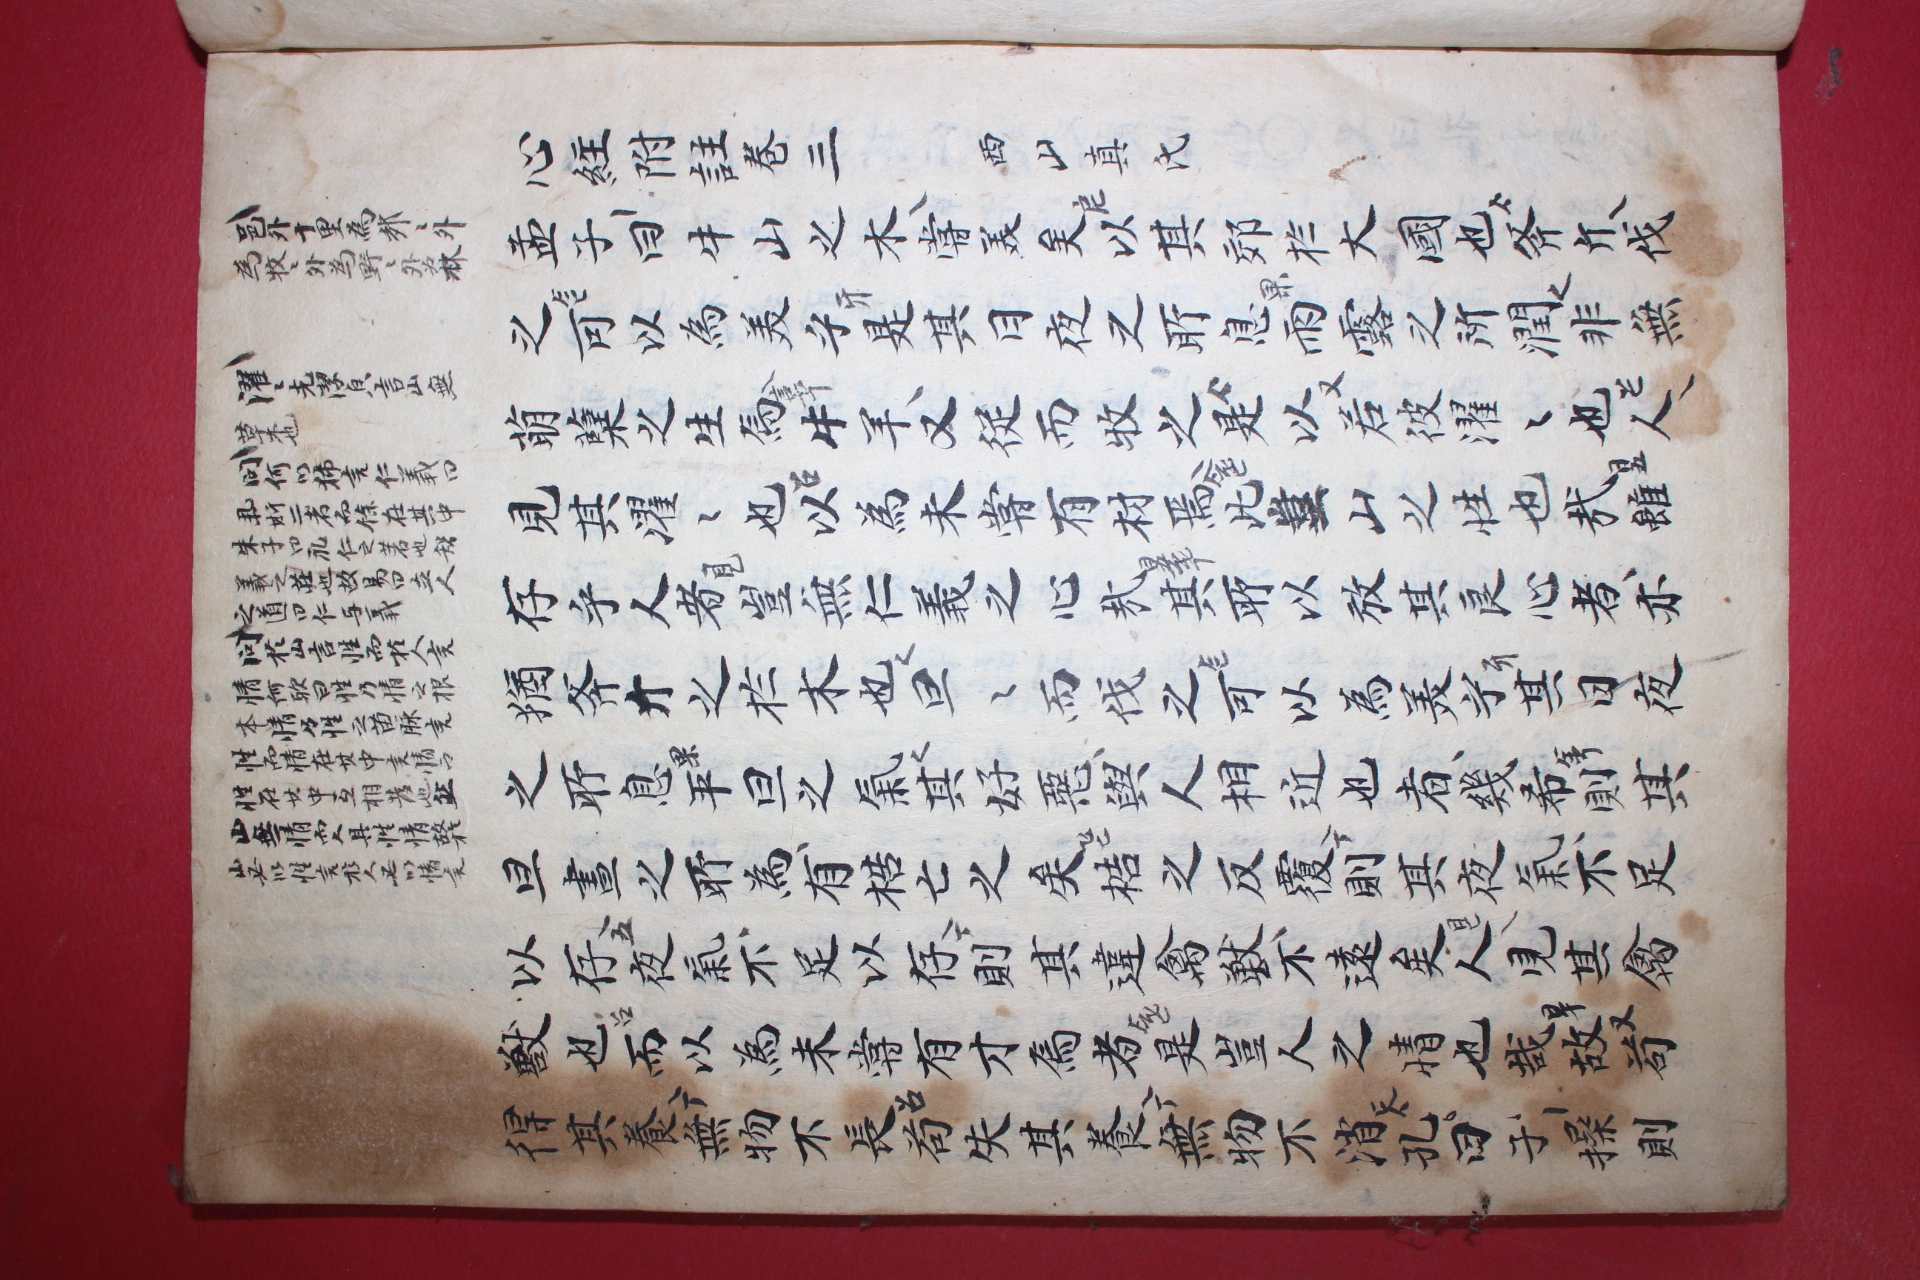 邑外十里為郊〻外
為牧〻外為野〻外为林
濯〻光潔皃言山無
草木也
問何以特言仁義曰
斯二者而餘在其中
朱子曰礼仁之著也智
義之莊也故易曰立人
之道曰仁与義
問於山言性而於人言
情何歟曰性乃情之根
本情乃性之苗脉言
性而情在其中言情而
性在其中互相發也然
山無情而人具性情故於
山只以性言於人只以情言
心經附註卷三 西山真氏
孟子曰牛山之木嘗美矣以其郊於大國也斧斤伐
之可以為美乎是其日夜之所息雨露之所潤非無
萌蘖之生焉牛羊又從而牧之是以若彼濯〻也人
見其濯〻也以為未嘗有材焉此豈山之性也哉雖
存乎人者豈無仁義之心哉其所以放其良心者亦
猶斧斤之於木也旦〻而伐之可以為美乎其日夜
之所息平旦之氣其好惡與人相近也者幾希則其
旦晝之所為有梏亡之矣梏之反覆則其夜氣不足
以存夜氣不足以存則其違禽獸不遠矣人見其禽
獸也而以為未嘗有才焉者是豈人之情也哉故苟
得其養無物不長苟失其養無物不消孔曰子操則